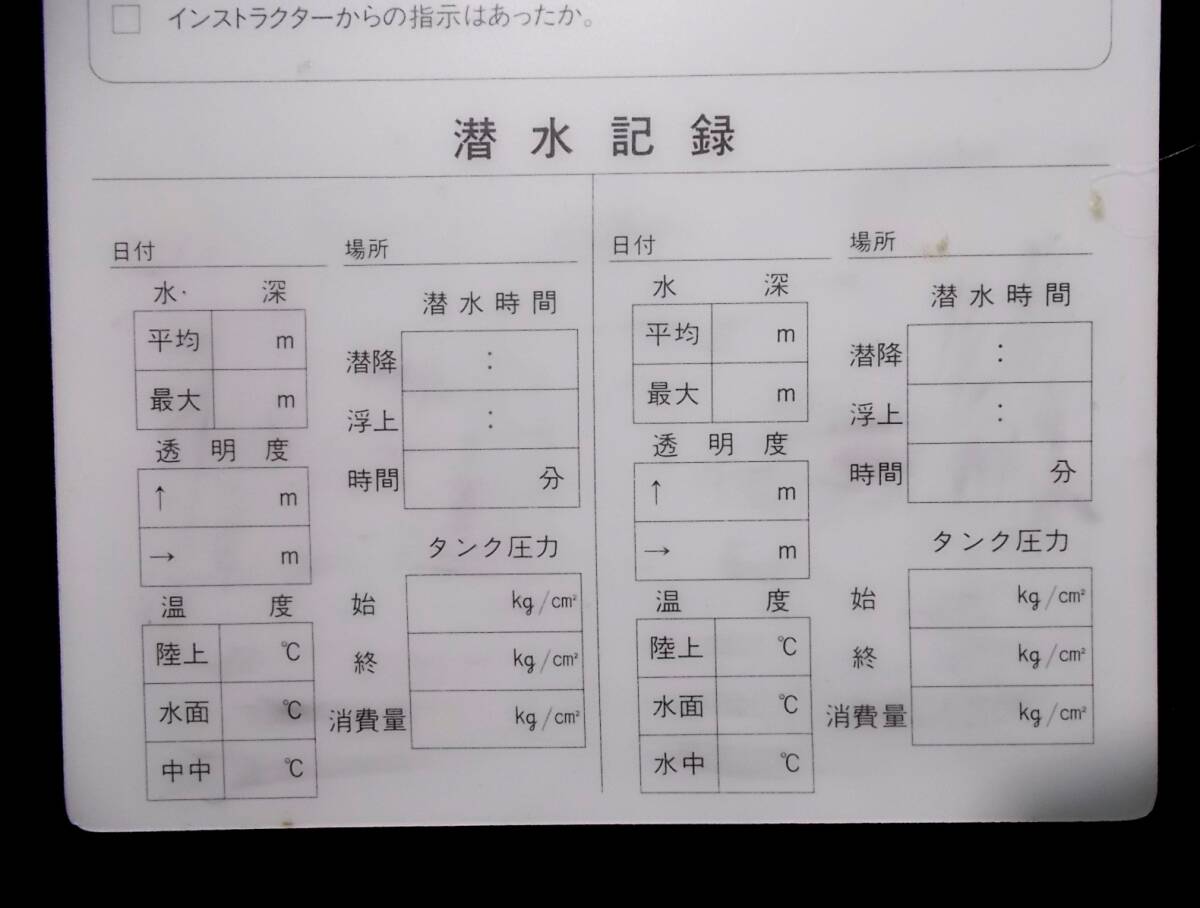 □ インストラクターからの指示はあったか。
潜水記録
日付 場所
水 深
平均 m
最大 m
透 明 度
↑ m
→ m
温 度
陸上 ℃
水面 ℃
中中 ℃
潜水時間
潜降 :
浮上 :
時間 分
タンク圧力
始 kg/cm²
終 kg/cm²
消費量 kg/cm²
日付 場所
水 深
平均 m
最大 m
透 明 度
↑ m
→ m
温 度
陸上 ℃
水面 ℃
水中 ℃
潜水時間
潜降 :
浮上 :
時間 分
タンク圧力
始 kg/cm²
終 kg/cm²
消費量 kg/cm²